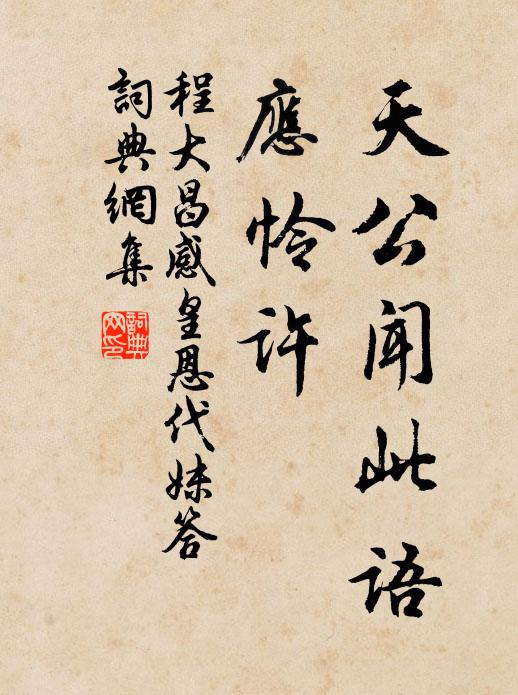 天公闻此語
應怜許
程大昌感皇恩代妹答
詞典網集
詞典
网印